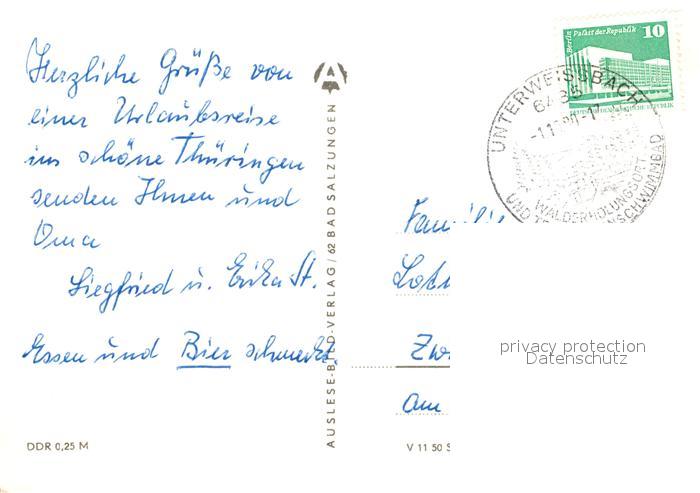 Herzliche Grüße von
einer Urlaubsreise
ins schöne Thüringen
senden Ihnen und
Oma
Siegfried u. Erika St.
Essen und Bier schmeckt.
DDR 0,25 M
AUSLESE-BILD-VERLAG / 62 BAD SALZUNGEN
Berlin Palast der Republik 10
DEUTSCHE DEMOKRATISCHE REPUBLIK
UNTERWEISSBACH
6435
WALDERHOLUNGSORT
UND
SCHWIMMBAD
Familie
Zw
am
V 11 50
privacy protection
Datenschutz